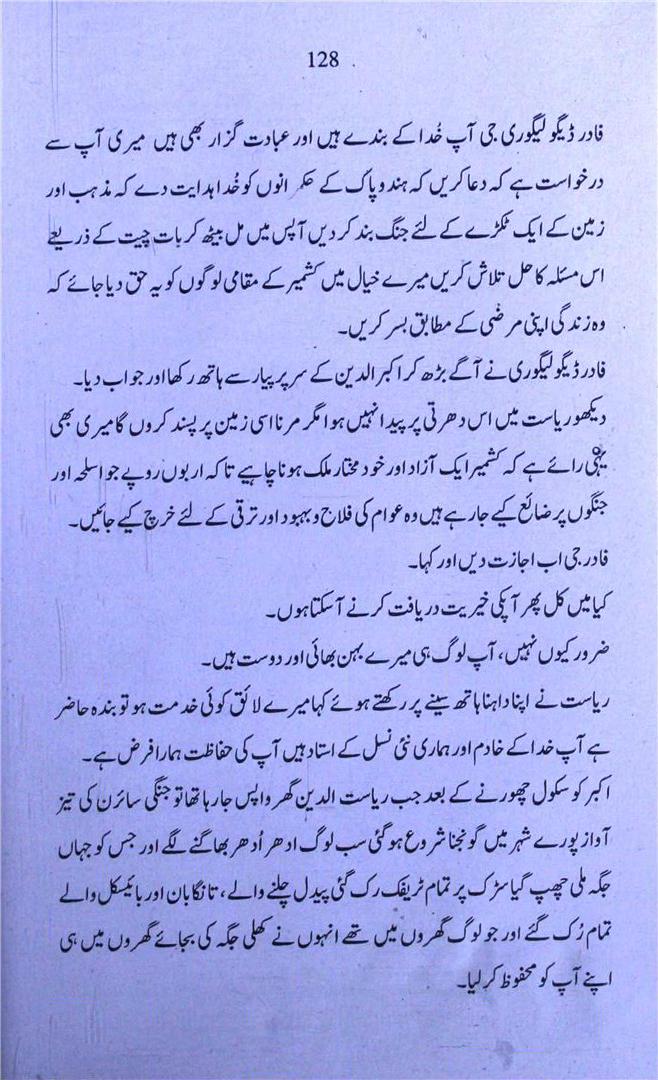 128
فادر ڈیگو لیگوری جی آپ خُدا کے بندے ہیں اور عبادت گزار بھی ہیں میری آپ سے
درخواست ہے کہ دعا کریں کہ ہند و پاک کے حکمرانوں کو خُدا ہدایت دے کہ مذہب اور
زمین کے ایک ٹکڑے کے لئے جنگ بند کر دیں آپس میں مل بیٹھ کر بات چیت کے ذریعے
اس مسئلہ کا حل تلاش کریں میرے خیال میں کشمیر کے مقامی لوگوں کو یہ حق دیا جائے کہ
وہ زندگی اپنی مرضی کے مطابق بسر کریں۔
فادر ڈیگو لیگوری نے آگے بڑھ کر اکبر الدین کے سر پر پیار سے ہاتھ رکھا اور جواب دیا۔
دیکھو ریاست میں اس دھرتی پر پیدا نہیں ہوا مگر مرنا اسی زمین پر پسند کروں گا میری بھی
یہی رائے ہے کہ کشمیر ایک آزاد اور خود مختار ملک ہونا چاہیے تاکہ اربوں روپے جو اسلحہ اور
جنگوں پر ضائع کیے جا رہے ہیں وہ عوام کی فلاح و بہبود اور ترقی کے لئے خرچ کیے جائیں۔
فادر جی اب اجازت دیں اور کہا۔
کیا میں کل پھر آپکی خیریت دریافت کرنے آ سکتا ہوں۔
ضرور کیوں نہیں، آپ لوگ ہی میرے بہن بھائی اور دوست ہیں۔
ریاست نے اپنا داہنا ہاتھ سینے پر رکھتے ہوئے کہا میرے لائق کوئی خدمت ہو تو بندہ حاضر
ہے آپ خدا کے خادم اور ہماری نئی نسل کے استاد ہیں آپ کی حفاظت ہمارا فرض ہے۔
اکبر کو سکول چھورنے کے بعد جب ریاست الدین گھر واپس جا رہا تھا تو جنگی سائرن کی تیز
آواز پورے شہر میں گونجنا شروع ہو گئی سب لوگ ادھر اُدھر بھاگنے لگے اور جس کو جہاں
جگہ ملی چھپ گیا سڑک پر تمام ٹریفک رک گئی پیدل چلنے والے، تانگا بان اور بائیسکل والے
تمام رُک گئے اور جو لوگ گھروں میں تھے انہوں نے کھلی جگہ کی بجائے گھروں میں ہی
اپنے آپ کو محفوظ کر لیا۔